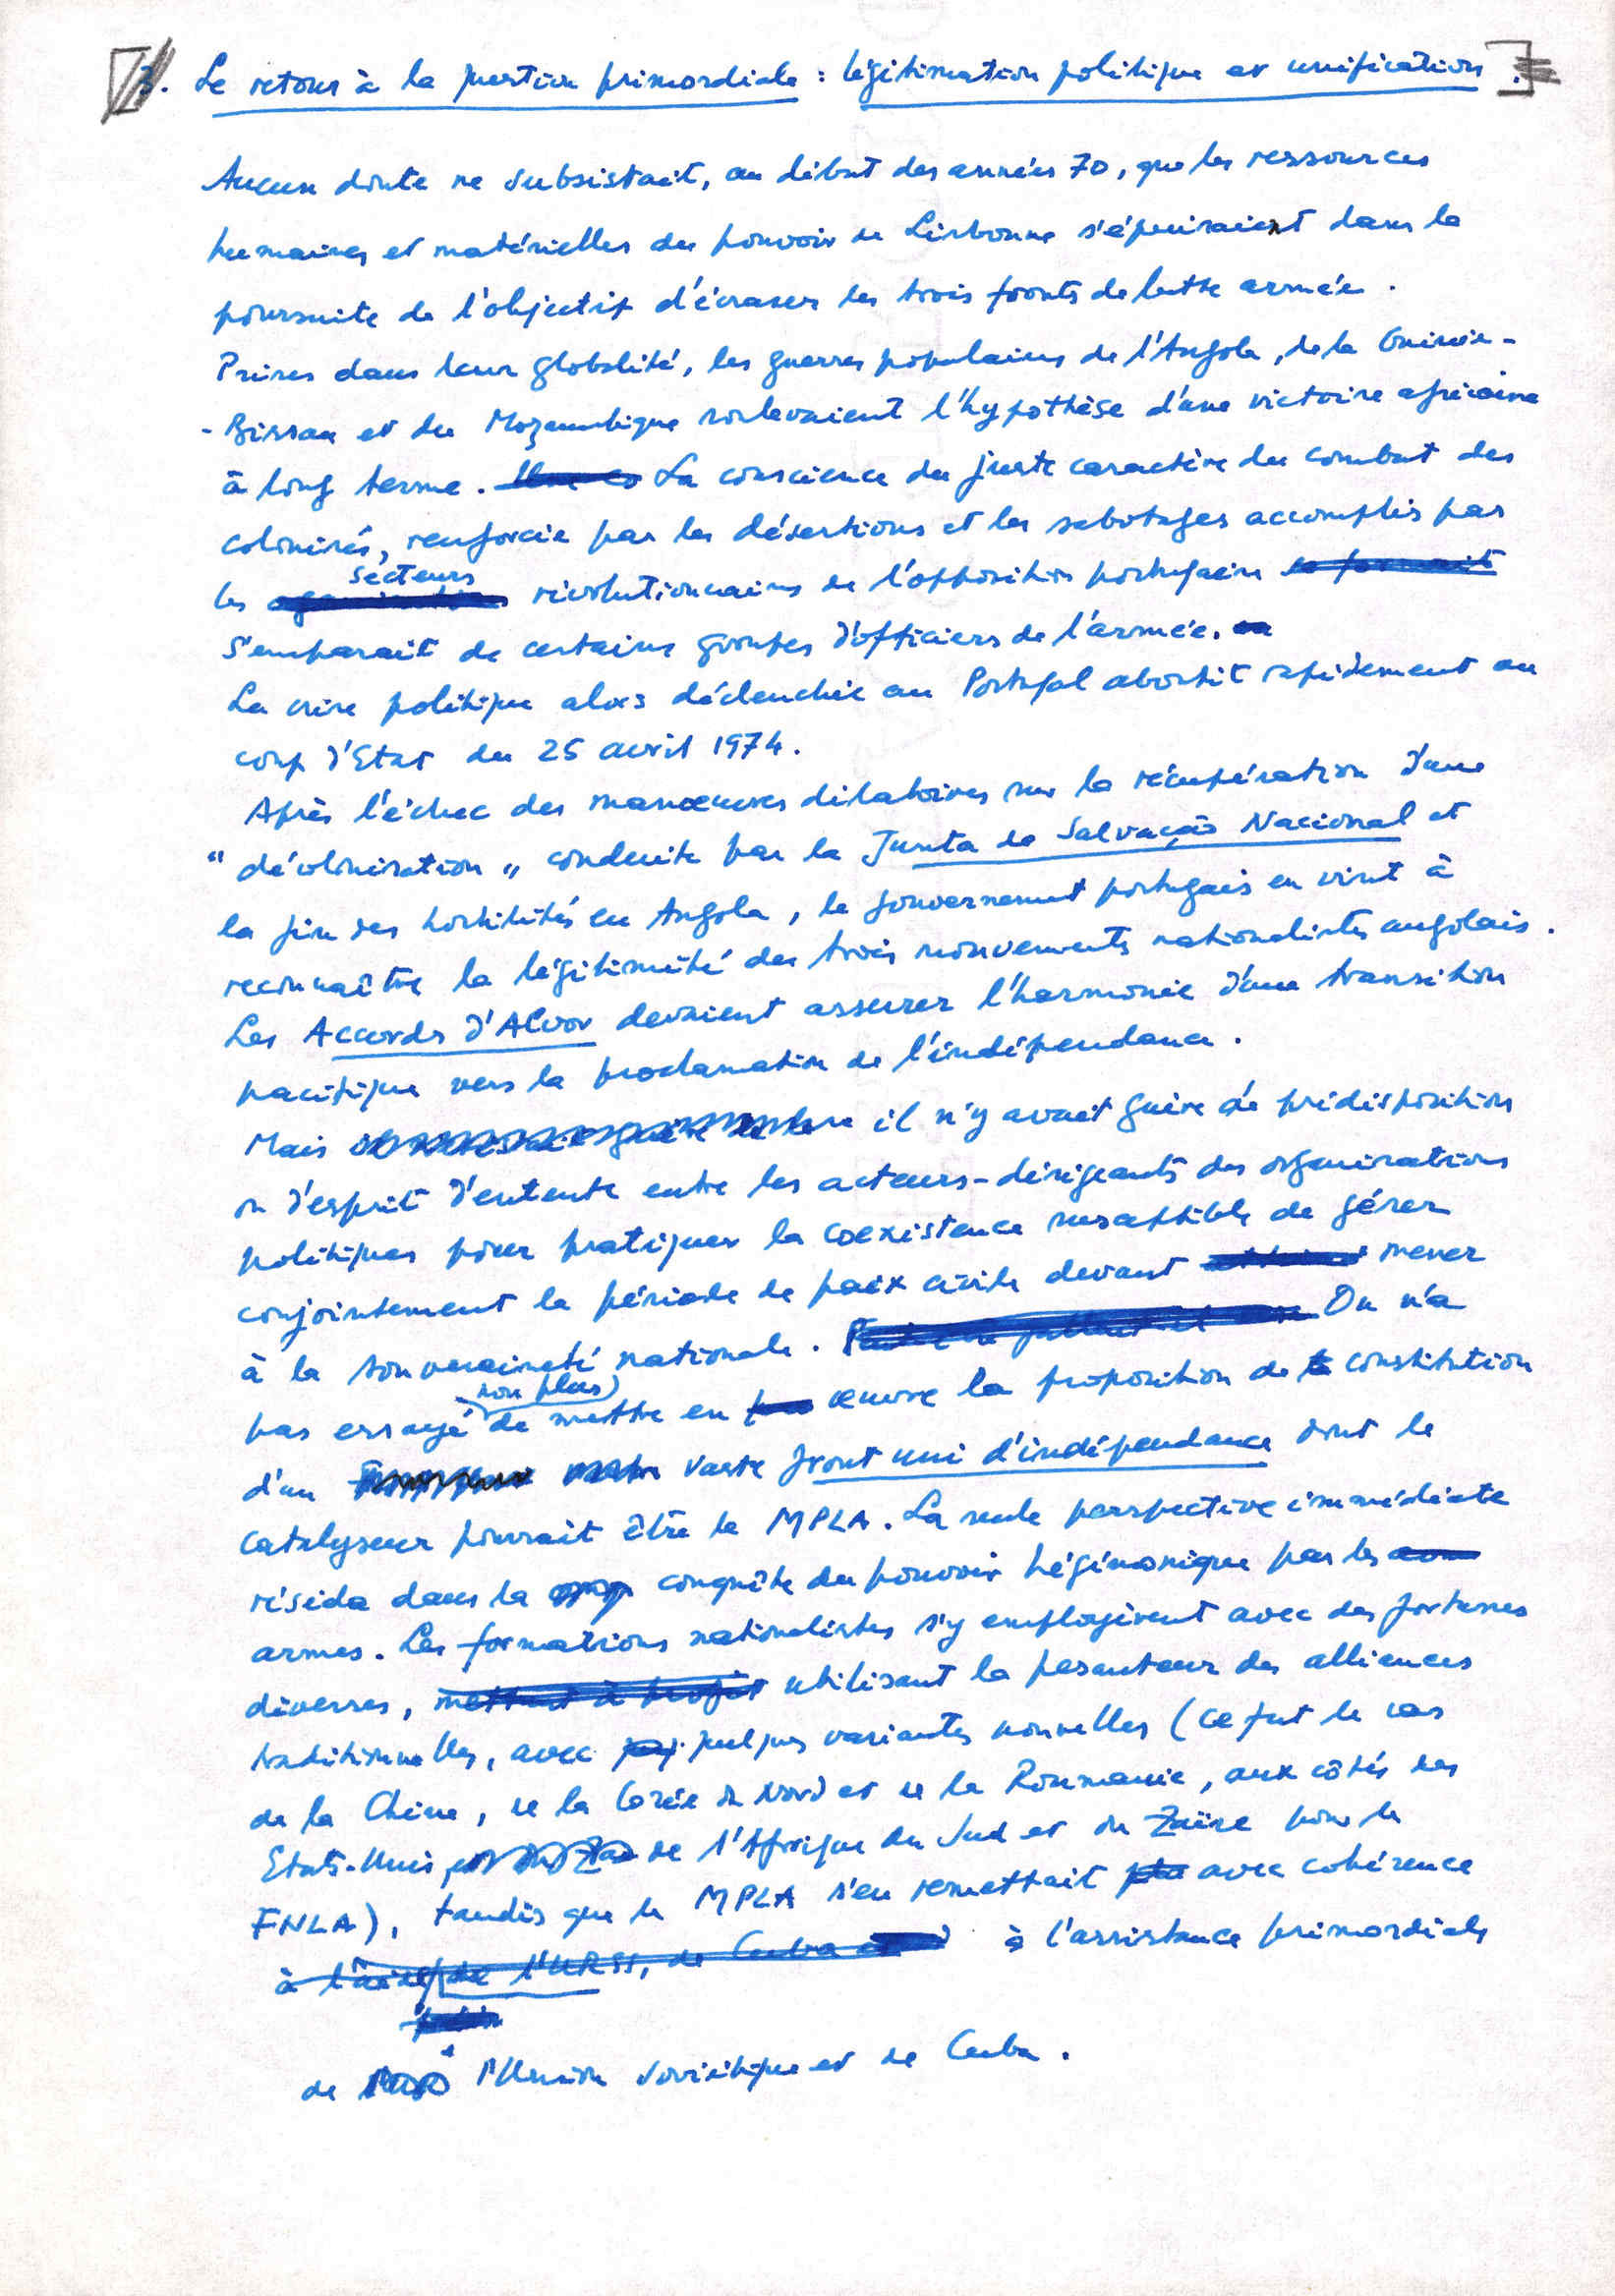 3. Le retour à la question primordiale : légitimation politique et unification.
Aucun doute ne subsistait, au début des années 70, que les ressources
humaines et matérielles du pouvoir de Lisbonne s'épuisaient dans la
poursuite de l'objectif d'écraser les trois fronts de lutte armée.
Prises dans leur globalité, les guerres populaires de l'Angola, de la Guinée-
-Bissau et du Mozambique soulevaient l'hypothèse d'une victoire africaine
à long terme. La conscience du juste caractère du combat des
colonisés, renforcée par les désertions et les sabotages accomplis par
les secteurs révolutionnaires de l'opposition portugaise
s'emparait de certains groupes d'officiers de l'armée.
La crise politique alors déclenchée au Portugal aboutit rapidement au
coup d'Etat du 25 avril 1974.
Après l'échec des manoeuvres dilatoires sur la récupération d'une
"décolonisation" conduite par la Junta de Salvação Nacional et
la fin des hostilités en Angola, le gouvernement portugais en vint à
reconnaître la légitimité des trois mouvements nationalistes angolais.
Les Accords d'Alvor devaient assurer l'harmonie d'une transition
pacifique vers la proclamation de l'indépendance.
Mais il n'y avait guère de prédisposition
ou d'esprit d'entente entre les acteurs-dirigeants des organisations
politiques pour pratiquer la coexistence susceptible de gérer
conjointement la période de paix civile devant mener
à la souveraineté nationale. On n'a
pas essayé non plus de mettre en œuvre la proposition de constitution
d'un vaste front uni d'indépendance dont le
catalyseur pourrait être le MPLA. La seule perspective immédiate
résida dans la conquête du pouvoir hégémonique par les
armes. Les formations nationalistes s'y employèrent avec des fortunes
diverses, mettant à profit utilisant la pesanteur des alliances
traditionnelles, avec quelques variantes nouvelles (ce fut le cas
de la Chine, de la Corée du Nord et de la Roumanie, aux côtés des
Etats-Unis, de l'Afrique du Sud et du Zaïre pour le
FNLA), tandis que le MPLA s'en remettait avec cohérence
à l'aide de l'URSS, de Cuba à l'assistance primordiale
de l'Union soviétique et de Cuba.